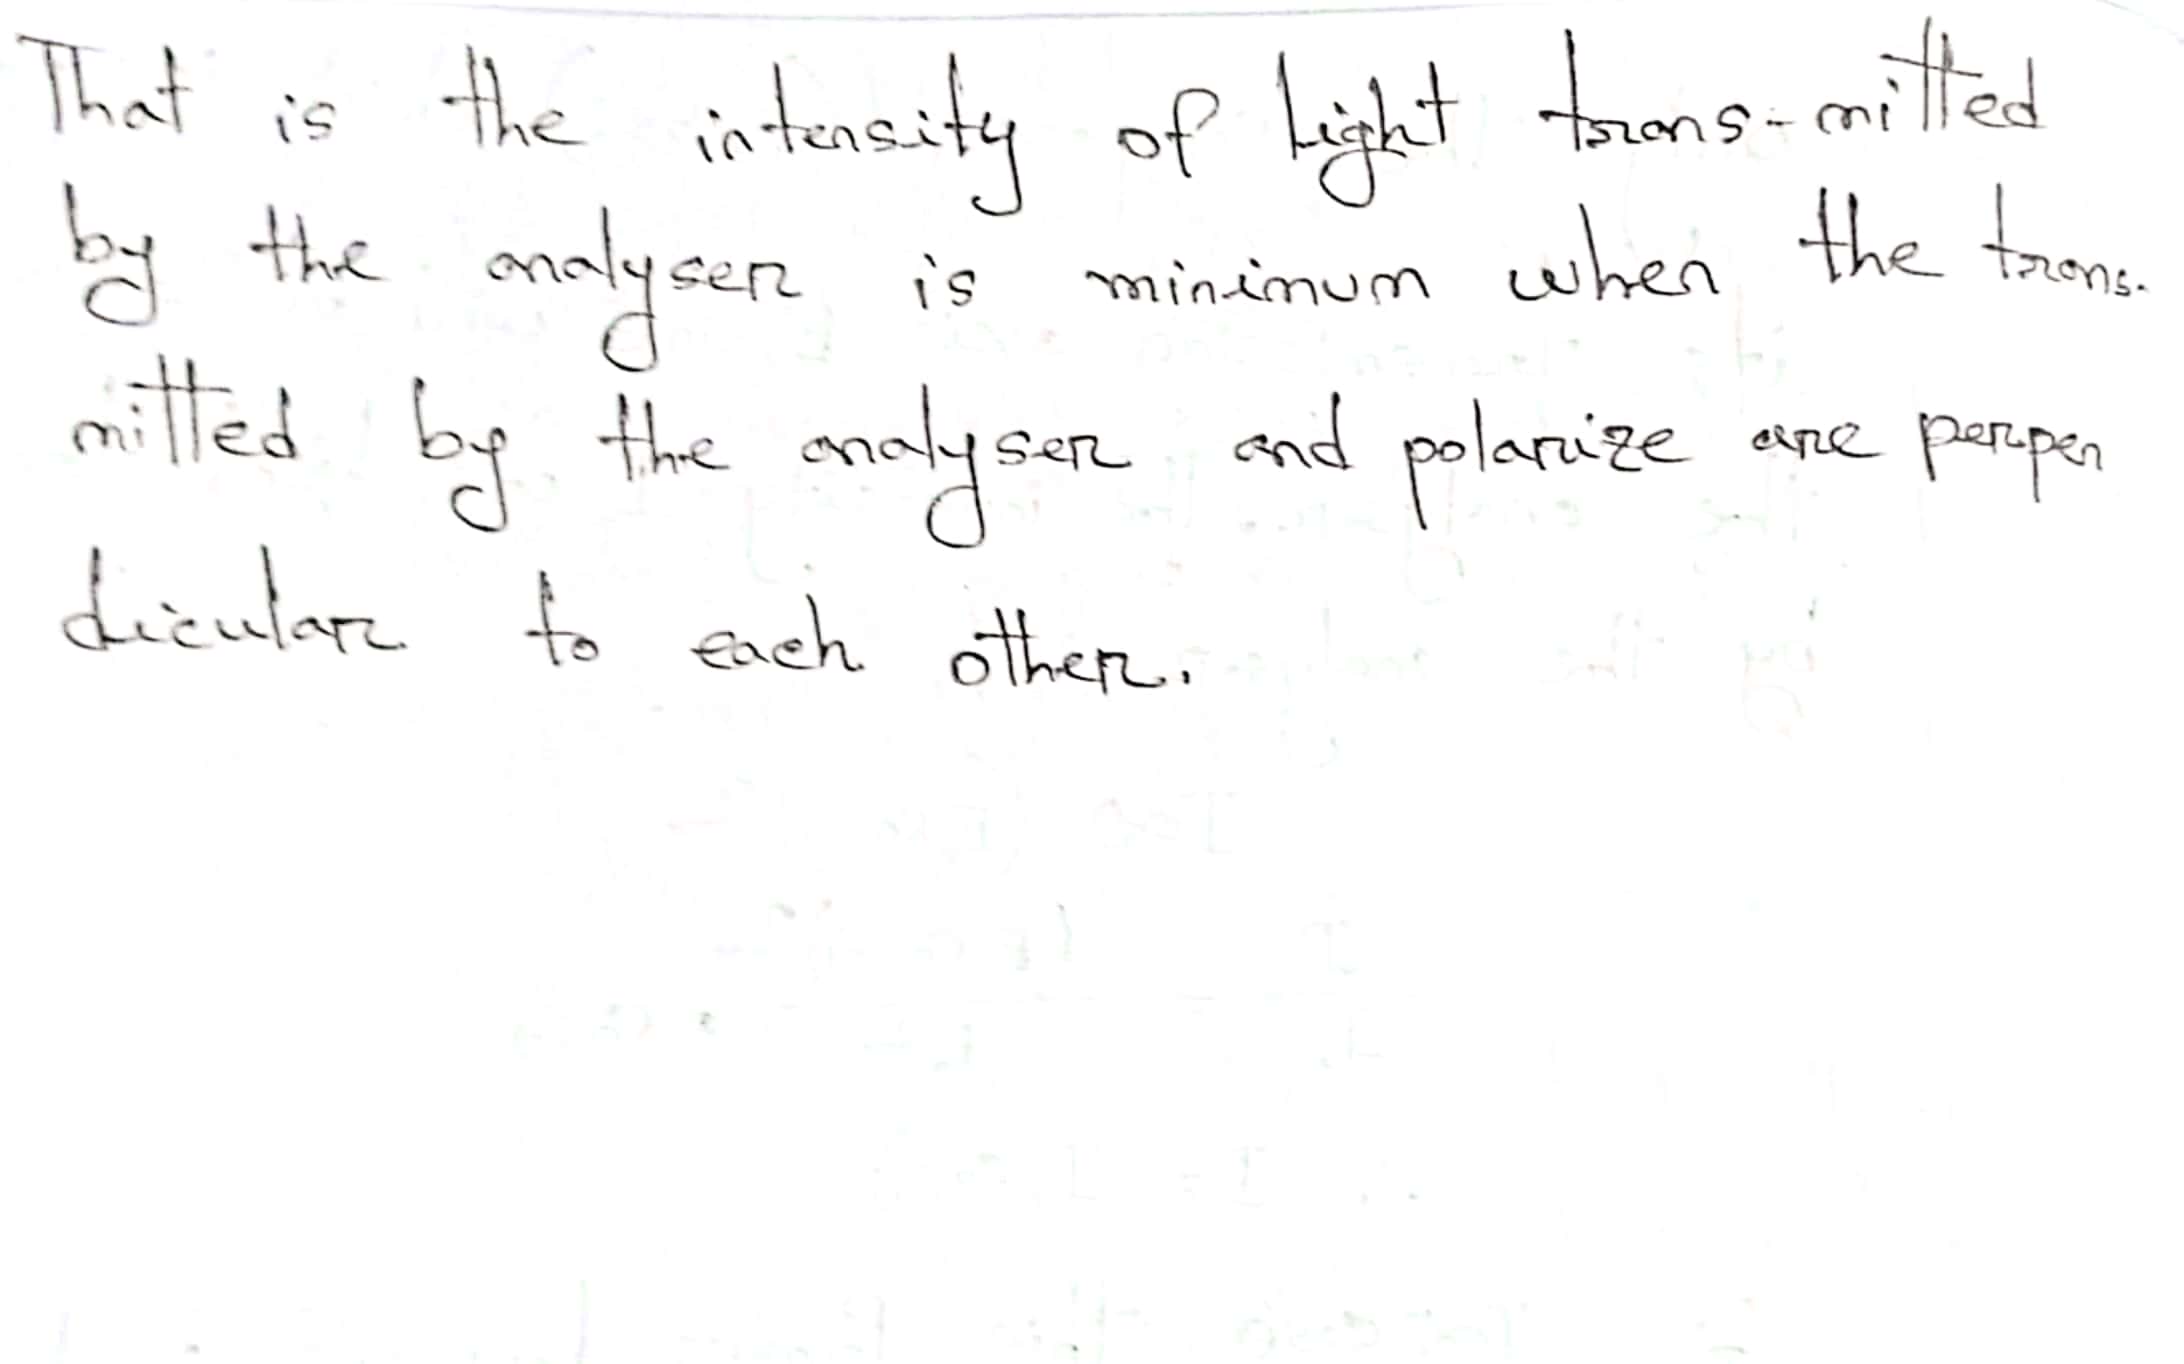 That is the intensity of light trans-mitted
by the analyser is minimum when the trans-
mitted by the analyser and polarize are perpen
dicular to each other.